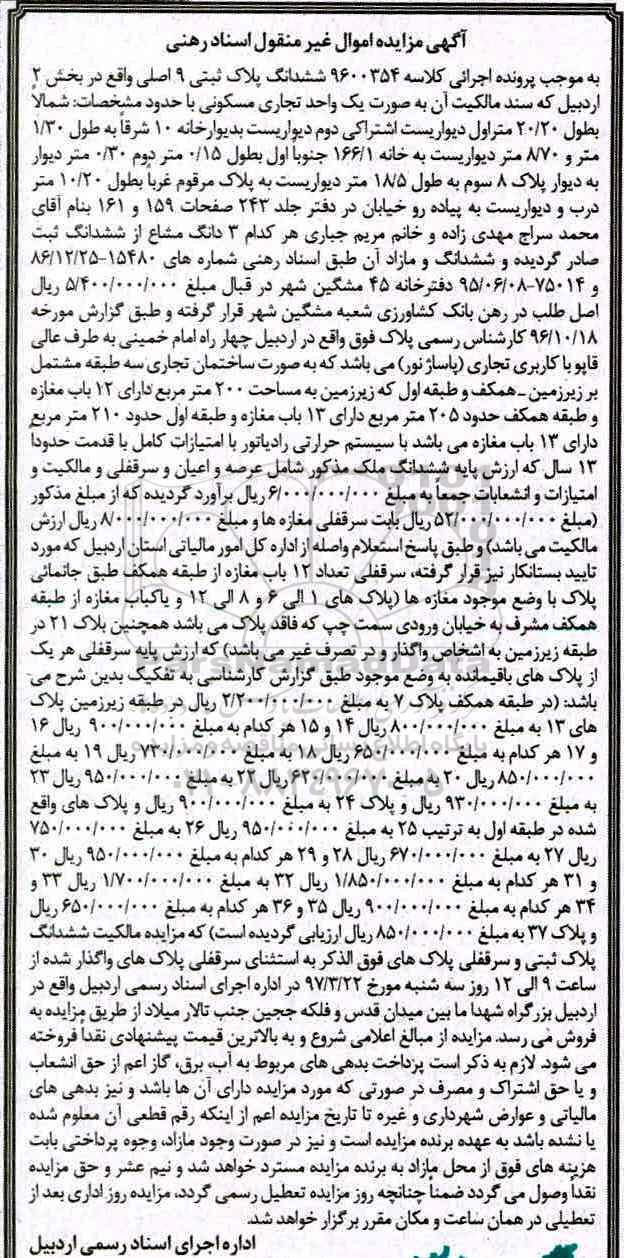 آگهی مزایده اموال غیر منقول اسناد رهنی
به موجب پرونده اجرائی کلاسه ۹۶۰۰۳۵۴ ششدانگ پلاک ثبتی ۹ اصلی واقع در بخش ۲
اردبیل که سند مالکیت آن به صورت یک واحد تجاری مسکونی با حدود مشخصات: شمالاً
بطول ۲۰/۲۰ متراول دیواریست اشتراکی دوم دیواریست بدیوارخانه ۱۰ شرقاً به طول ۱/۳۰
متر و ۸/۷۰ متر دیواریست به خانه ۱۶۶/۱ جنوباً اول بطول ۰/۱۵ متر دوم ۰/۳۰ متر دیوار
به دیوار پلاک ۸ سوم به طول ۱۸/۵ متر دیواریست به پلاک مرقوم غرباً بطول ۱۰/۲۰ متر
درب و دیواریست به پیاده رو خیابان در دفتر جلد ۲۴۳ صفحات ۱۵۹ و ۱۶۱ بنام آقای
محمد سراج مهدی زاده و خانم مریم جباری هر کدام ۳ دانگ مشاع از ششدانگ ثبت
صادر گردیده و ششدانگ و مازاد آن طبق اسناد رهنی شماره های ۱۵۴۸۰-۸۶/۱۲/۲۵
و ۷۵۰۱۴-۹۵/۰۶/۰۸ دفترخانه ۴۵ مشگین شهر در قبال مبلغ ۵/۴۰۰/۰۰۰/۰۰۰ ریال
اصل طلب در رهن بانک کشاورزی شعبه مشگین شهر قرار گرفته و طبق گزارش مورخه
۹۶/۱۰/۱۸ کارشناس رسمی پلاک فوق واقع در اردبیل چهار راه امام خمینی به طرف عالی
قاپو با کاربری تجاری (پاساژ نور) می باشد که به صورت ساختمان تجاری سه طبقه مشتمل
بر زیرزمین ـ همکف و طبقه اول که زیرزمین به مساحت ۲۰۰ متر مربع دارای ۱۲ باب مغازه
و طبقه همکف حدود ۲۰۵ متر مربع دارای ۱۳ باب مغازه و طبقه اول حدود ۲۱۰ متر مربع
دارای ۱۳ باب مغازه می باشد با سیستم حرارتی رادیاتور با امتیازات کامل با قدمت حدوداً
۱۳ سال که ارزش پایه ششدانگ ملک مذکور شامل عرصه و اعیان و سرقفلی و مالکیت و
امتیازات و انشعابات جمعاً به مبلغ ۶۰/۰۰۰/۰۰۰/۰۰۰ ریال برآورد گردیده که از مبلغ مذکور
(مبلغ ۵۲/۰۰۰/۰۰۰/۰۰۰ ریال بابت سرقفلی مغازه ها و مبلغ ۸/۰۰۰/۰۰۰/۰۰۰ ریال ارزش
مالکیت می باشد) و طبق پاسخ استعلام واصله از اداره کل امور مالیاتی استان اردبیل که مورد
تایید بستانکار نیز قرار گرفته، سرقفلی تعداد ۱۲ باب مغازه از طبقه همکف طبق جانمائی
پلاک با وضع موجود مغازه ها (پلاک های ۱ الی ۶ و ۸ الی ۱۲ و یاکباب مغازه از طبقه
همکف مشرف به خیابان ورودی سمت چپ که فاقد پلاک می باشد همچنین پلاک ۲۱ در
طبقه زیرزمین به اشخاص واگذار و در تصرف غیر می باشد) که ارزش پایه سرقفلی هر یک
از پلاک های باقیمانده به وضع موجود طبق گزارش کارشناسی به تفکیک بدین شرح می
باشد: (در طبقه همکف پلاک ۷ به مبلغ ۲/۲۰۰/۰۰۰/۰۰۰ ریال در طبقه زیرزمین پلاک
های ۱۳ به مبلغ ۸۰۰/۰۰۰/۰۰۰ ریال ۱۴ و ۱۵ هر کدام به مبلغ ۹۰۰/۰۰۰/۰۰۰ ریال ۱۶
و ۱۷ هر کدام به مبلغ ۶۵۰/۰۰۰/۰۰۰ ریال ۱۸ به مبلغ ۷۳۰/۰۰۰/۰۰۰ ریال ۱۹ به مبلغ
۸۵۰/۰۰۰/۰۰۰ ریال ۲۰ به مبلغ ۶۲۰/۰۰۰/۰۰۰ ریال ۲۲ به مبلغ ۹۵۰/۰۰۰/۰۰۰ ریال ۲۳
به مبلغ ۹۳۰/۰۰۰/۰۰۰ ریال و پلاک ۲۴ به مبلغ ۹۰۰/۰۰۰/۰۰۰ ریال و پلاک های واقع
شده در طبقه اول به ترتیب ۲۵ به مبلغ ۹۵۰/۰۰۰/۰۰۰ ریال ۲۶ به مبلغ ۷۵۰/۰۰۰/۰۰۰
ریال ۲۷ به مبلغ ۶۷۰/۰۰۰/۰۰۰ ریال ۲۸ و ۲۹ هر کدام به مبلغ ۹۵۰/۰۰۰/۰۰۰ ریال ۳۰
و ۳۱ هر کدام به مبلغ ۱/۸۵۰/۰۰۰/۰۰۰ ریال ۳۲ به مبلغ ۱/۷۰۰/۰۰۰/۰۰۰ ریال ۳۳ و
۳۴ هر کدام به مبلغ ۹۰۰/۰۰۰/۰۰۰ ریال ۳۵ و ۳۶ هر کدام به مبلغ ۶۵۰/۰۰۰/۰۰۰ ریال
و پلاک ۳۷ به مبلغ ۸۵۰/۰۰۰/۰۰۰ ریال ارزیابی گردیده است) که مزایده مالکیت ششدانگ
پلاک ثبتی و سرقفلی پلاک های فوق الذکر به استثنای سرقفلی پلاک های واگذار شده از
ساعت ۹ الی ۱۲ روز سه شنبه مورخ ۹۷/۳/۲۲ در اداره اجرای اسناد رسمی اردبیل واقع در
اردبیل بزرگراه شهدا ما بین میدان قدس و فلکه ججین جنب تالار میلاد از طریق مزایده به
فروش می رسد. مزایده از مبالغ اعلامی شروع و به بالاترین قیمت پیشنهادی نقداً فروخته
می شود. لازم به ذکر است پرداخت بدهی های مربوط به آب، برق، گاز اعم از حق انشعاب
و یا حق اشتراک و مصرف در صورتی که مورد مزایده دارای آن ها باشد و نیز بدهی های
مالیاتی و عوارض شهرداری و غیره تا تاریخ مزایده اعم از اینکه رقم قطعی آن معلوم شده
یا نشده باشد به عهده برنده مزایده است و نیز در صورت وجود مازاد، وجوه پرداختی بابت
هزینه های فوق از محل مازاد به برنده مزایده مسترد خواهد شد و نیم عشر و حق مزایده
نقداً وصول می گردد ضمناً چنانچه روز مزایده تعطیل رسمی گردد، مزایده روز اداری بعد از
تعطیلی در همان ساعت و مکان مقرر برگزار خواهد شد.
اداره اجرای اسناد رسمی اردبیل
ParsNamadData